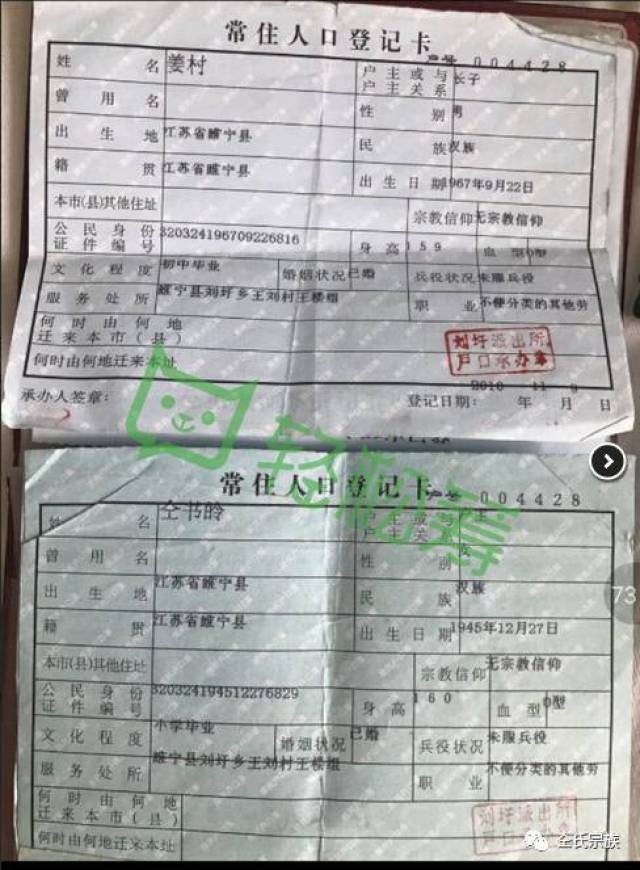 常住人口登记卡
户号 004428
姓名 姜村 户主或与户主关系 长子
曾用名 性别 男
出生地 江苏省睢宁县 民族 汉族
籍贯 江苏省睢宁县 出生日期 1967年9月22日
本市(县)其他住址 宗教信仰 无宗教信仰
公民身份证件编号 320324196709226816 身高 159 血型 O型
文化程度 初中毕业 婚姻状况 已婚 兵役状况 未服兵役
服务处所 睢宁县刘圩乡王刘村王楼组 职业 不便分类的其他劳
何时由何地迁来本市(县)
何时由何地迁来本址
刘圩派出所
户口承办章
2010 11 9
承办人签章: 登记日期: 年 月 日
轻松筹
常住人口登记卡
户号 004428
姓名 仝书皊 户主或与户主关系 户主
曾用名 性别 女
出生地 江苏省睢宁县 民族 汉族
籍贯 江苏省睢宁县 出生日期 1945年12月27日
73
本市(县)其他住址 宗教信仰 无宗教信仰
公民身份证件编号 320324194512276829 身高 160 血型 O型
文化程度 小学毕业 婚姻状况 已婚 兵役状况 未服兵役
服务处所 睢宁县刘圩乡王刘村王楼组 职业 不便分类的其他劳
何时由何地迁来本市(县)
何时由何地迁来本址
刘圩派出所
户口承办章
仝氏宗族